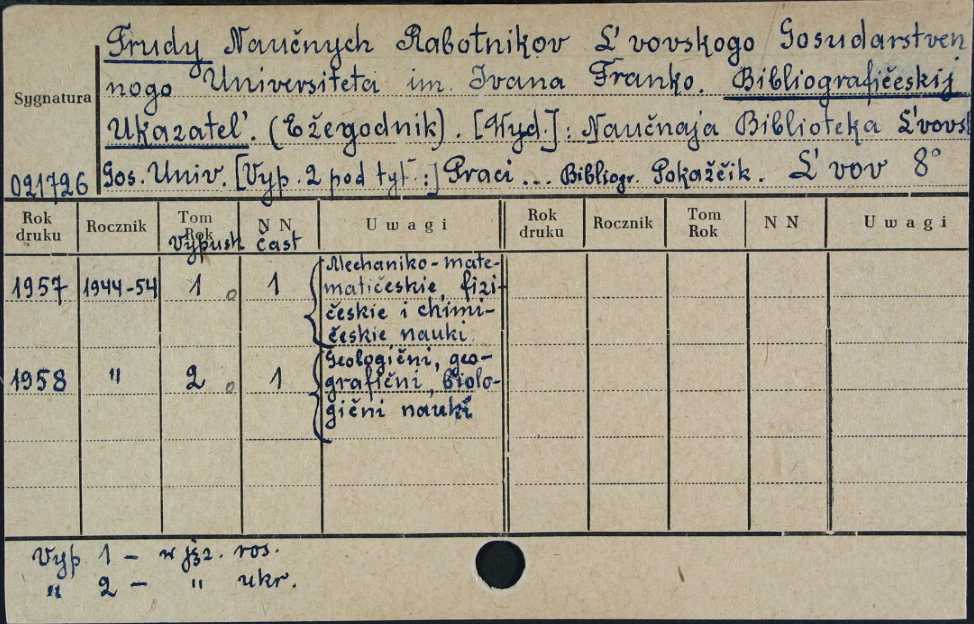 Trudy Naučnych Rabotnikov L'vovskogo Gosudarstven
nogo Universiteta im. Ivana Franko. Bibliografičeskij
Sygnatura
Ukazatel'. (Ežegodnik). [Wyd.]: Naučnaja Biblioteka L'vovsk
021726 Gos. Univ. [Vyp. 2 pod tyt.:] Praci... Bibliogr. Pokažčik. L'vov 8°
Rok druku Rocznik Tom Rok N N Uwagi Rok druku Rocznik Tom Rok N N Uwagi
Vypusk čast
1957 1944-54 1 1 Mechaniko-mate-
matičeskie, fizi-
českie i chimi-
českie nauki
1958 " 2 1 Geologični, geo-
grafični, biolo-
gični nauki
Vyp. 1 - w jęz. ros.
" 2 - " ukr.